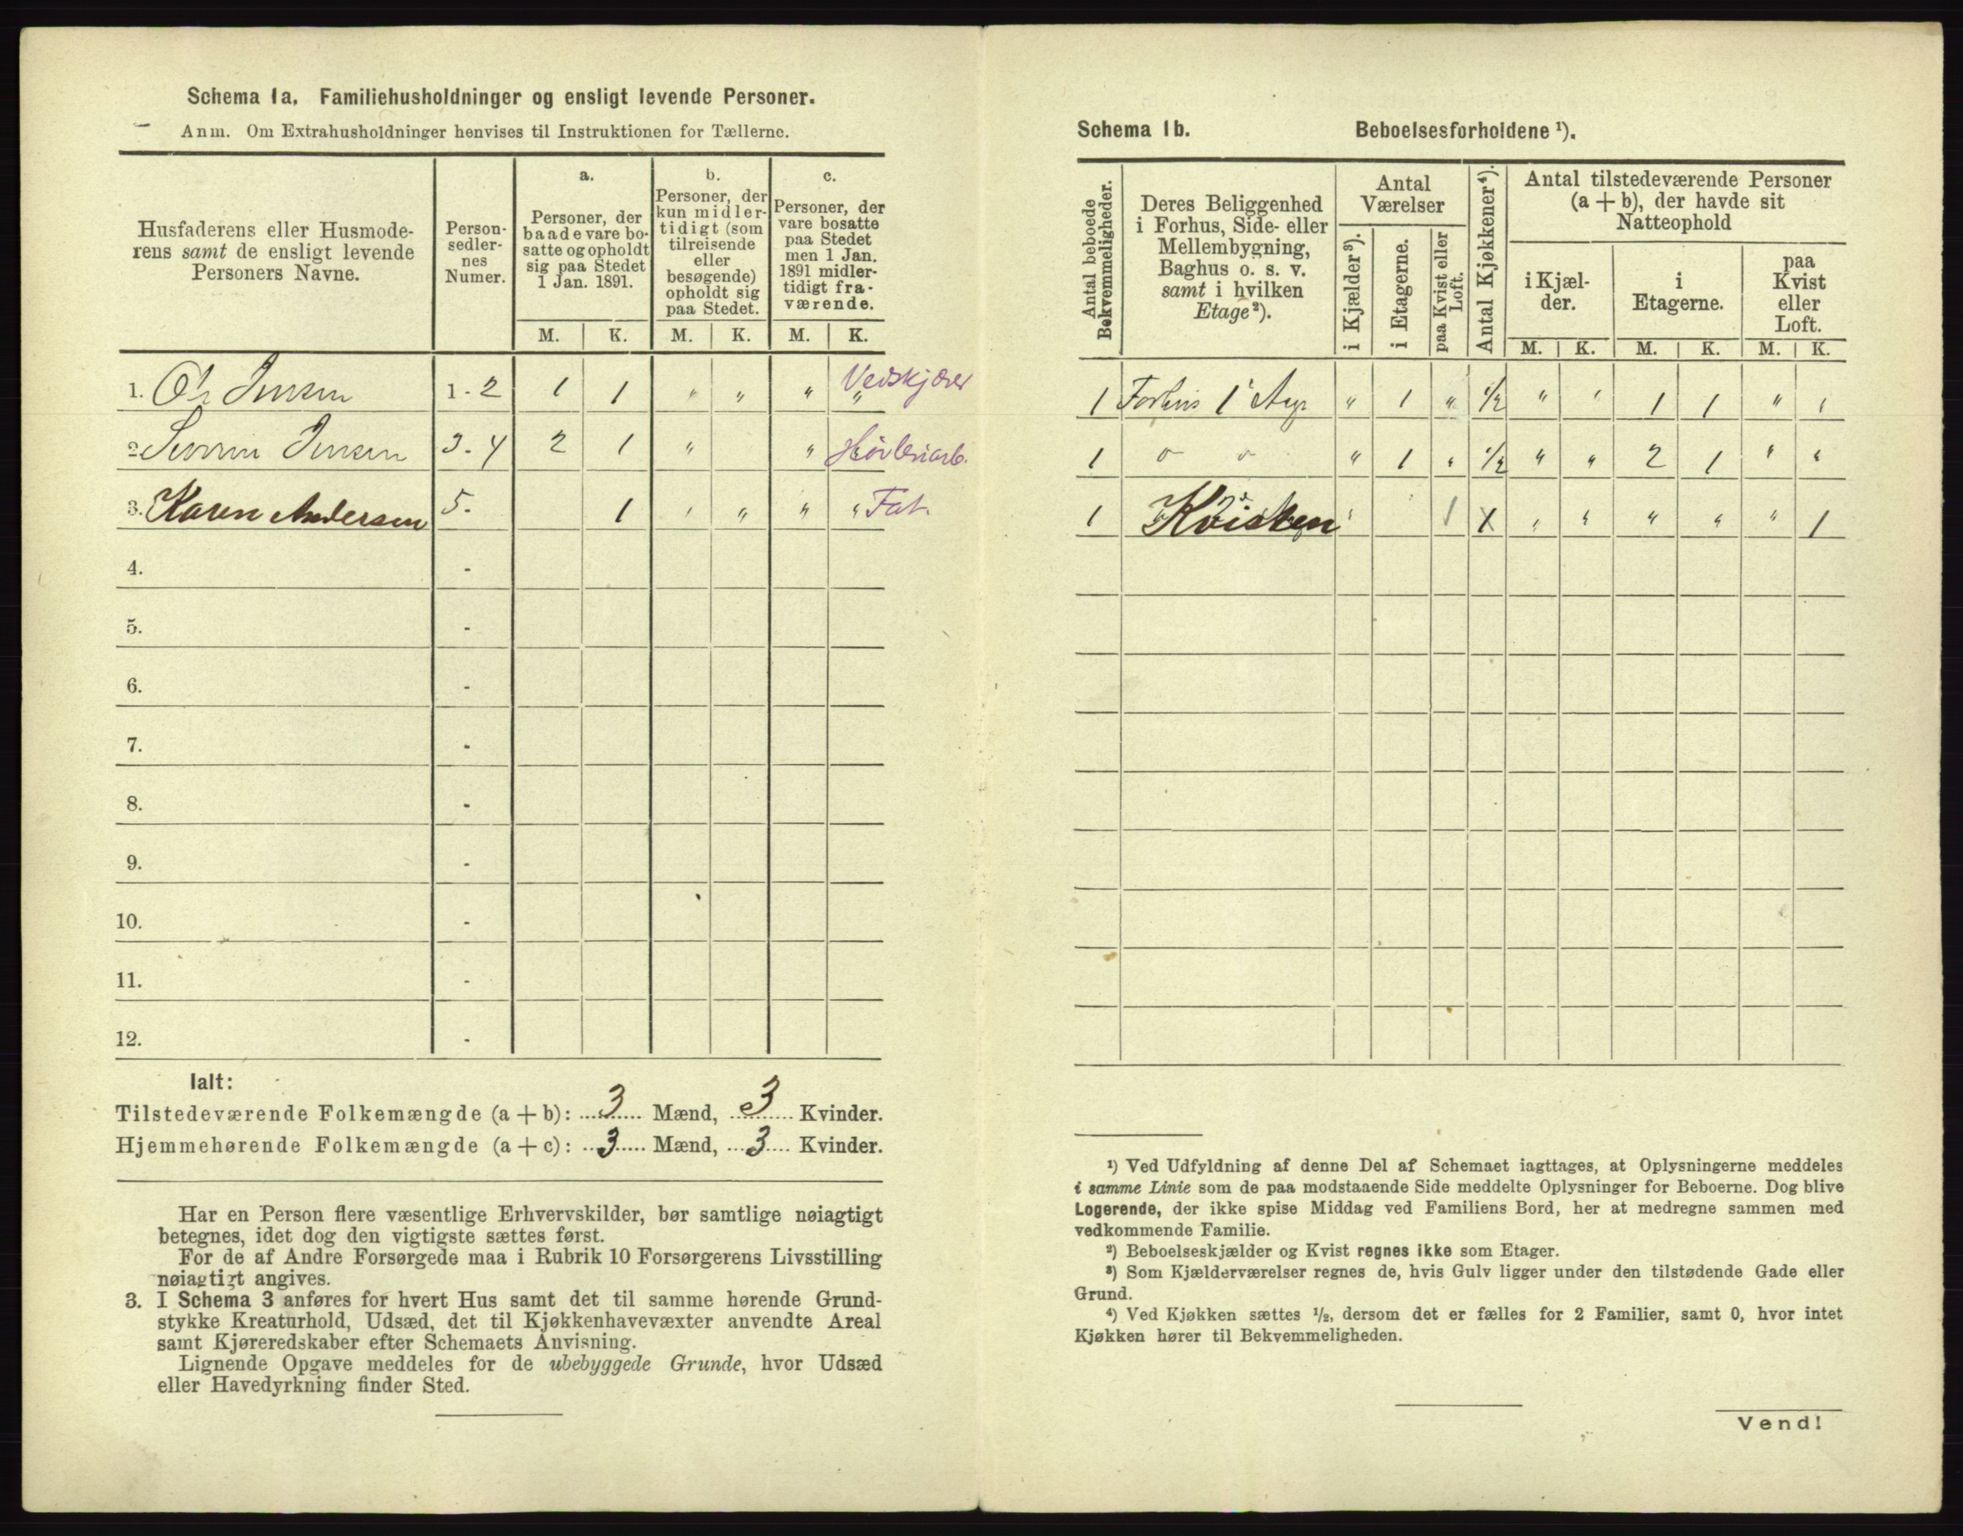 Schema 1a. Familiehusholdninger og ensligt levende Personer.
Anm. Om Extrahusholdninger henvises til Instruktionen for Tællerne.
Husfaderens eller Husmode-
rens samt de ensligt levende
Personers Navne.
Person-
sedler-
nes
Numer.
a.
Personer, der
baade vare bo-
satte og opholdt
sig paa Stedet
1 Jan. 1891.
b.
Personer, der
kun midler-
tidigt (som
tilreisende
eller
besøgende)
opholdt sig
paa Stedet.
c.
Personer, der
vare bosatte
paa Stedet
men 1 Jan.
1891 midler-
tidigt fra-
værende.
M. K. M. K. M. K.
1. Ole Jensen 1-2 1 1 " " " " Vedskjærer
2 Jensen 3-4 2 1 " " Høvleriarb.
3. Karen Andersen 5. 1 " " " " Fat.
4. -
5. -
6. -
7. -
8. -
9. -
10. -
11. -
12. -
Ialt:
Tilstedeværende Folkemængde (a + b): 3 Mænd, 3 Kvinder.
Hjemmehørende Folkemængde (a + c): 3 Mænd, 3 Kvinder.
Har en Person flere væsentlige Erhvervskilder, bør samtlige nøiagtigt
betegnes, idet dog den vigtigste sættes først.
For de af Andre Forsørgede maa i Rubrik 10 Forsørgerens Livsstilling
nøiagtigt angives.
3. I Schema 3 anføres for hvert Hus samt det til samme hørende Grund-
stykke Kreaturhold, Udsæd, det til Kjøkkenhavevæxter anvendte Areal
samt Kjøreredskaber efter Schemaets Anvisning.
Lignende Opgave meddeles for de ubebyggede Grunde, hvor Udsæd
eller Havedyrkning finder Sted.
Schema 1b. Beboelsesforholdene ¹).
Antal beboede
Bekvemmeligheder.
Deres Beliggenhed
i Forhus, Side- eller
Mellembygning,
Baghus o. s. v.
samt i hvilken
Etage²).
Antal
Værelser
i Kjælder³).
i Etagerne.
paa Kvist eller
Loft.
Antal Kjøkkener⁴).
Antal tilstedeværende Personer
(a + b), der havde sit
Natteophold
i Kjæl-
der.
i
Etagerne.
paa
Kvist
eller
Loft.
M. K. M. K. M. K.
1 Forhus 1 " 1 " 1/2 " " 1 1 " "
1 " " " 1 " 1/2 " " 2 1 " "
1 Kvisten " 1 " " " " " 1
¹) Ved Udfyldning af denne Del af Schemaet iagttages, at Oplysningerne meddeles
i samme Linie som de paa modstaaende Side meddelte Oplysninger for Beboerne. Dog blive
Logerende, der ikke spise Middag ved Familiens Bord, her at medregne sammen med
vedkommende Familie.
²) Beboelseskjælder og Kvist regnes ikke som Etager.
³) Som Kjælderværelser regnes de, hvis Gulv ligger under den tilstødende Gade eller
Grund.
⁴) Ved Kjøkken sættes ½, dersom det er fælles for 2 Familier, samt 0, hvor intet
Kjøkken hører til Bekvemmeligheden.
Vend!